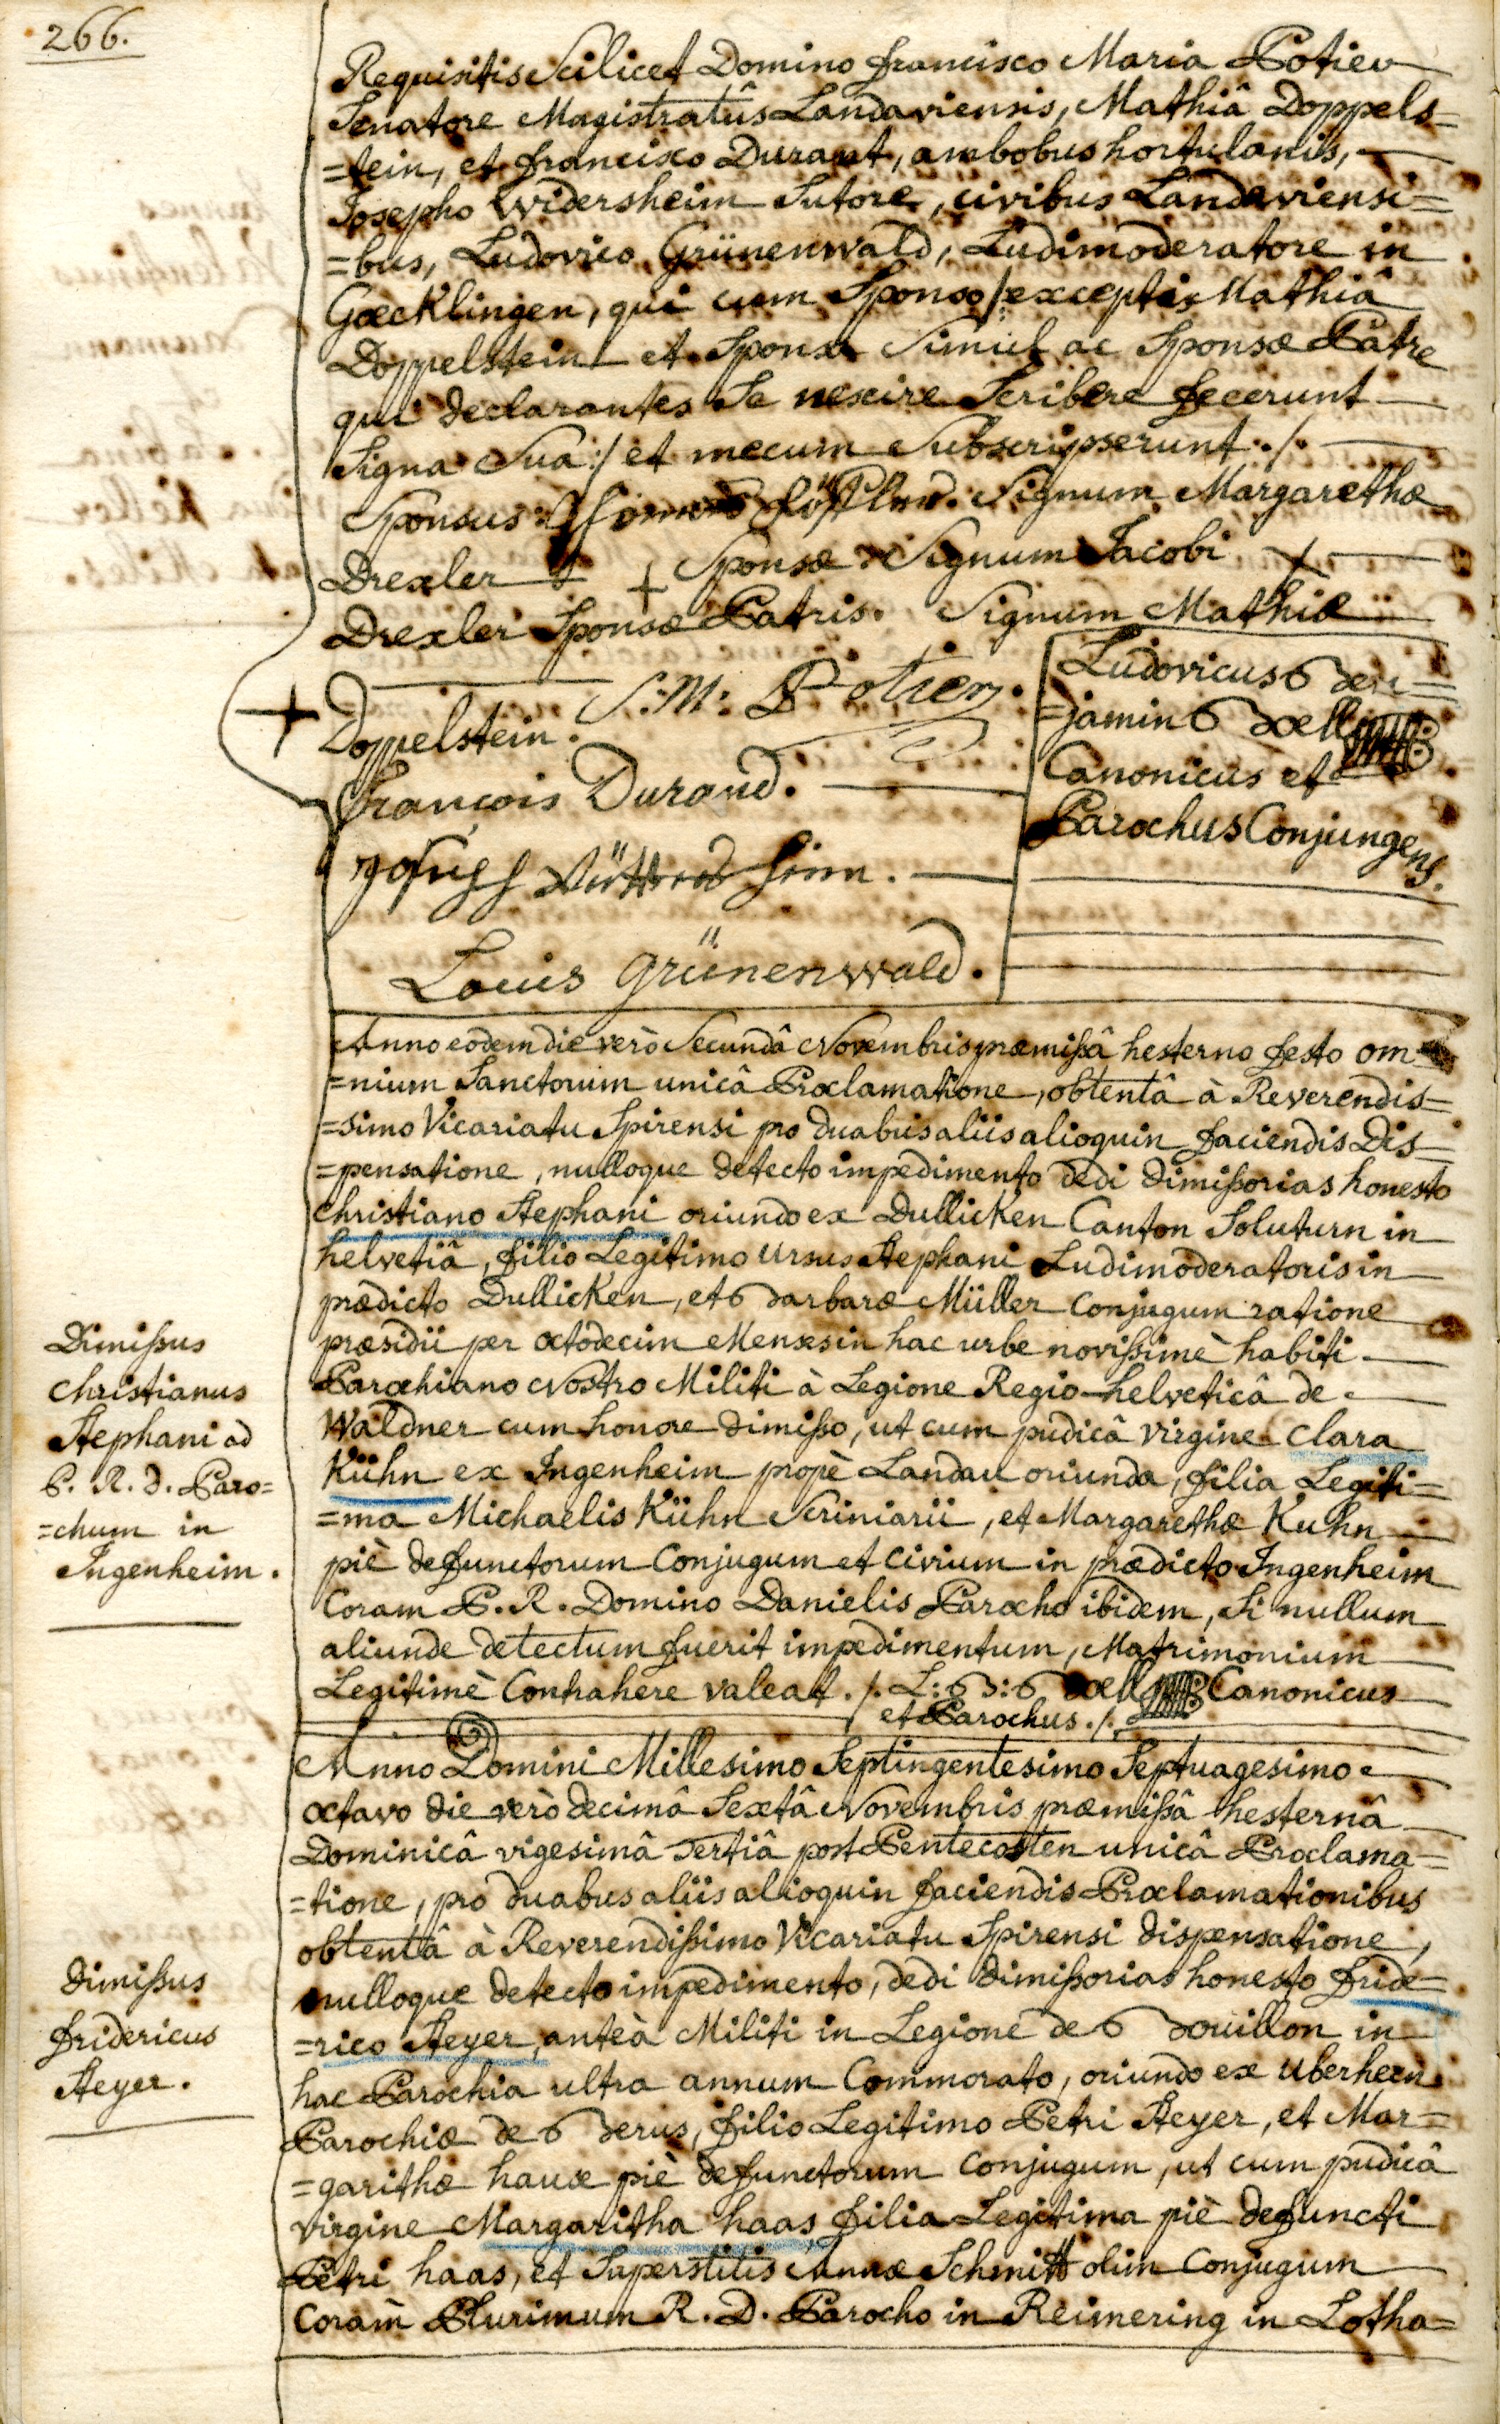 266.
Requisitis Scilicet Domino francisco Maria Potier
Senatore Magistratûs Landaviensis, Mathiâ Doppels=
=tein, et francisco Durant, ambobus hortulanis,
Josepho Widersheim Sutore, civibus Landaviensi=
=bus, Ludovico Grünenwald, Ludimoderatore in
Gœcklingen, qui cum Sponso /: exceptis Mathiâ
Doppelstein et Sponsa Simul ac Sponsæ Patre
qui declarantes Se nescire Scribere fecerunt
Signa Sua :/ et mecum Subscripserunt ./.
Sponsus: Signum Margarethæ
Drexler + Sponsæ. Signum Jacobi +
Drexler Sponsæ Patris. Signum Mathiæ
+ Doppelstein. F: M: Potier.
françois Durand.
Joseph
Louis Grünenwald.
Ludovicus Ben=
=jamin Bœll
Canonicus et
Parochus Conjungens.
Anno eodem die verò Secundâ Novembris præmißâ hesterno festo om=
=nium Sanctorum unicâ Proclamatione, obtentâ à Reverendis=
=simo Vicariatu Spirensi pro duabus aliis alioquin faciendis Dis=
=pensatione, nulloque detecto impedimento dedi dimißorias honesto
Christiano Stephani oriundo ex Dullicken Canton Soluturn in
helvetiâ, filio Legitimo Ursus Stephani Ludimoderatoris in
prædicto Dullicken, et Barbaræ Müller Conjugum ratione
præsidii per octodecim Menses in hac urbe novißimè habiti
Parochiano Nostro Militi à Legione Regio-helveticâ de
Waldner cum honore dimißo, ut cum pudicâ virgine Clara
Kühn ex Ingenheim propè Landau oriunda, filia Legiti=
=ma Michaelis Kühn Scriniarii, et Margarethæ Kuhn
piè defunctorum Conjugum et Civium in prædicto Ingenheim
Coram P. R. Domino Danielis Parocho ibidem, Si nullum
aliunde detectum fuerit impedimentum, Matrimonium
Legitimè Contrahere valeat ./. L: B: Bœll Canonicus
et Parochus ./.
Dimißus
Christianus
Stephani ad
P. R. D. Paro=
=chum in
Ingenheim.
Anno Domini Millesimo Septingentesimo Septuagesimo
octavo die verò decimâ Sextâ Novembris præmißâ hesternâ
Dominicâ vigesimâ Tertiâ post Pentecosten unicâ Proclama=
=tione, pro duabus aliis alioquin faciendis Proclamationibus
obtentâ à Reverendißimo Vicariatu Spirensi dispensatione,
nulloque detecto impedimento, dedi dimißorias honesto fride=
=rico Steyer, anteà Militi in Legione de Bouillon in
hac Parochia ultra annum Commorato, oriundo ex Uberhern
Parochiæ de Berus, filio Legitimo Petri Steyer, et Mar=
=garithæ hauæ piè defunctorum Conjugum, ut cum pudicâ
virgine Margaritha haas, filia Legitima piè defuncti
Petri haas, et Superstitis Annæ Schmitt olim Conjugum
Coram Plurimum R. D. Parocho in Reimering in Lotha=
Dimißus
fridericus
Steyer.